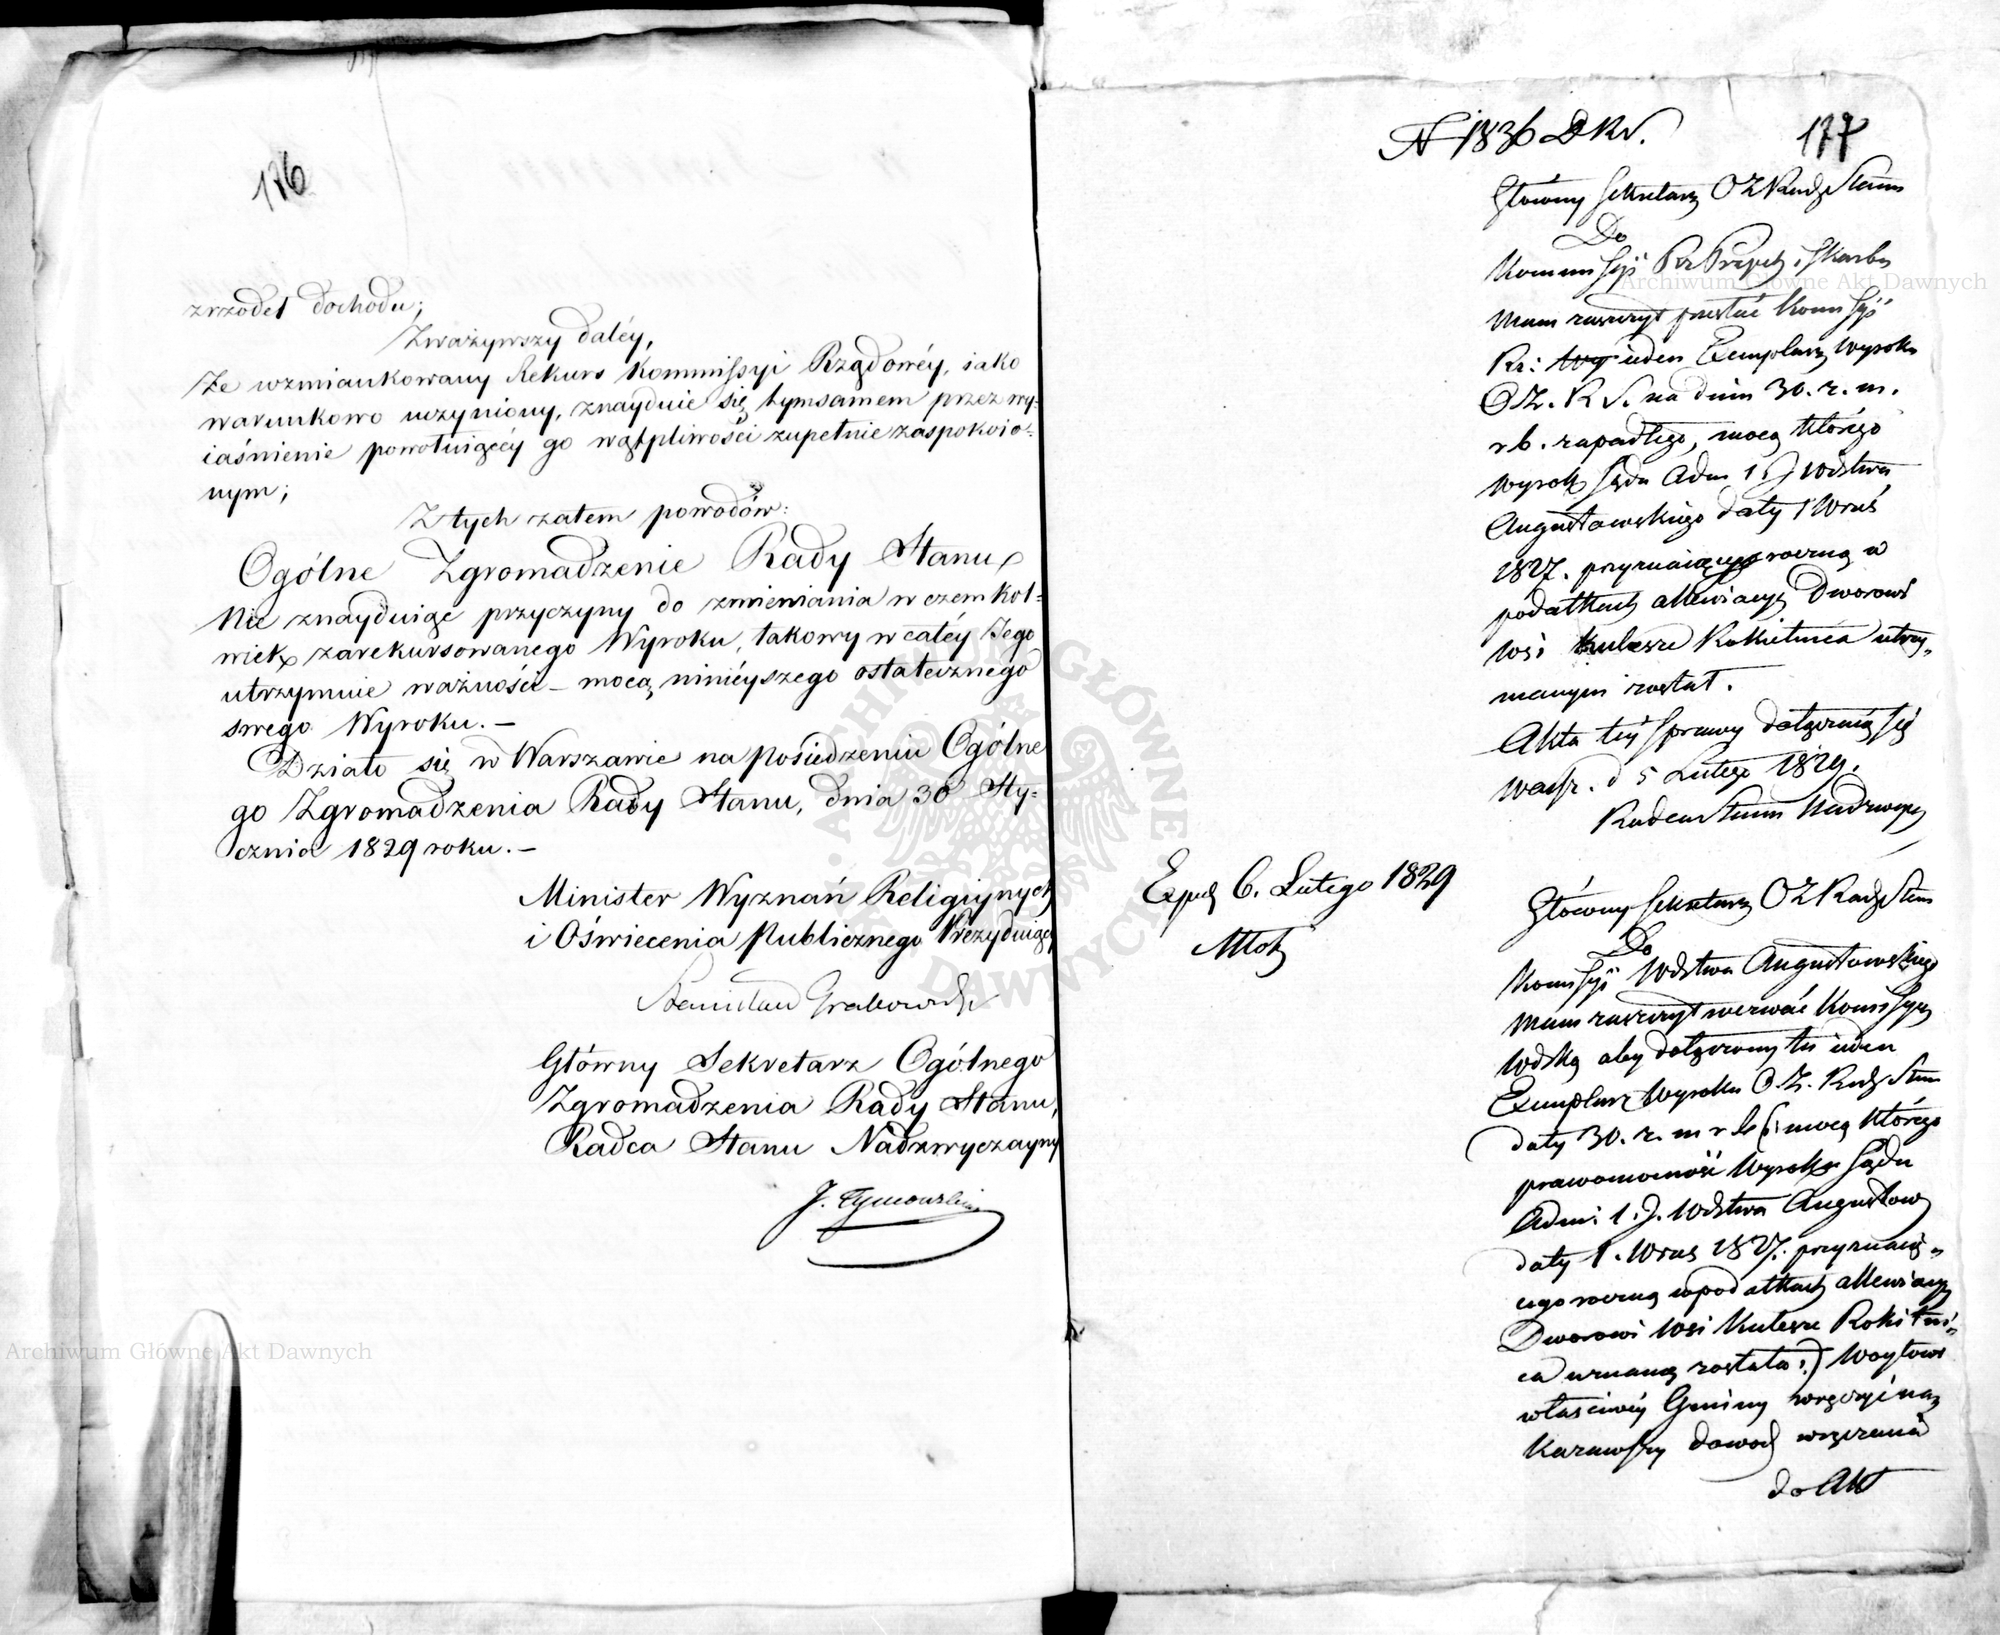 176
zrzodeł dochodu;
Zważywszy daléy,
Że wzmiankowany Rekurs Kommissyi Rządowéy, iako
warunkowo uczyniony, znayduie się tymsamem przez wy-
iaśnienie powołuiącéy go wątpliwości zupełnie zaspokoio-
nym;
Z tych zatem powodów:
Ogólne Zgromadzenie Rady Stanu
Nie znayduiąc przyczyny do zmieniania w czemkol-
wiek zarekursowanego Wyroku, takowy w całéy Jego
utrzymuie ważności – mocą ninieyszego ostatecznego
swego Wyroku. –
Działo się w Warszawie na posiedzeniu Ogólne
go Zgromadzenia Rady Stanu, dnia 30 Sty-
cznia 1829 roku. –
Minister Wyznań Religiynych
i Oświecenia Publicznego Prezyduiący
Stanisław Grabowski
Główny Sekretarz Ogólnego
Zgromadzenia Rady Stanu,
Radca Stanu Nadzwyczayny
J. Tymowski
N 1836 DKS.
177
Główny Sekretarz OZ Rady Stanu
Do
Kommissyi Rz Przych i Skarbu
Mam zaszczyt przesłać Komissyi
Rz: ieden Exemplarz Wyroku
OZ. R S. na dniu 30. z. m.
r b. zapadłego, mocą którego
Wyrok Sądu Adm 1. J Wdztwa
Augustowskiego daty 1 Wrześ
1827. przyznaiący roczną w
podatkach allewiacyą Dworowi
Wsi Kulesze Rokitnica utrzy-
manym został.
Akta téy sprawy dołączaią się
Warsz. d 5 Lutego 1829.
Radca Stanu Nadzwycz
Exped 6. Lutego 1829
Główny Sekretarz OZ Rady Stanu
Do
Komissyi Wdztwa Augustowskiego
Mam zaszczyt wezwać Komissyą
Wdzką aby dołączony tu ieden
Exemplarz Wyroku O. Z. Rady Stanu
daty 30. z. m r b (: mocą którego
prawomocność Wyroku Sądu
Adm: 1. J. Wdztwa Augustow
daty 1. Wrześ 1827. przyznaią-
cego roczną w podatkach allewiacyą
Dworowi Wsi Kulesze Rokitni-
ca uznaną została :) Woytowi
właściwéy Gminy wręczyć na-
kazawszy dowod wręczenia
do Akt
Archiwum Główne Akt Dawnych
Archiwum Główne Akt Dawnych
ARCHIWUM GŁÓWNE AKT DAWNYCH